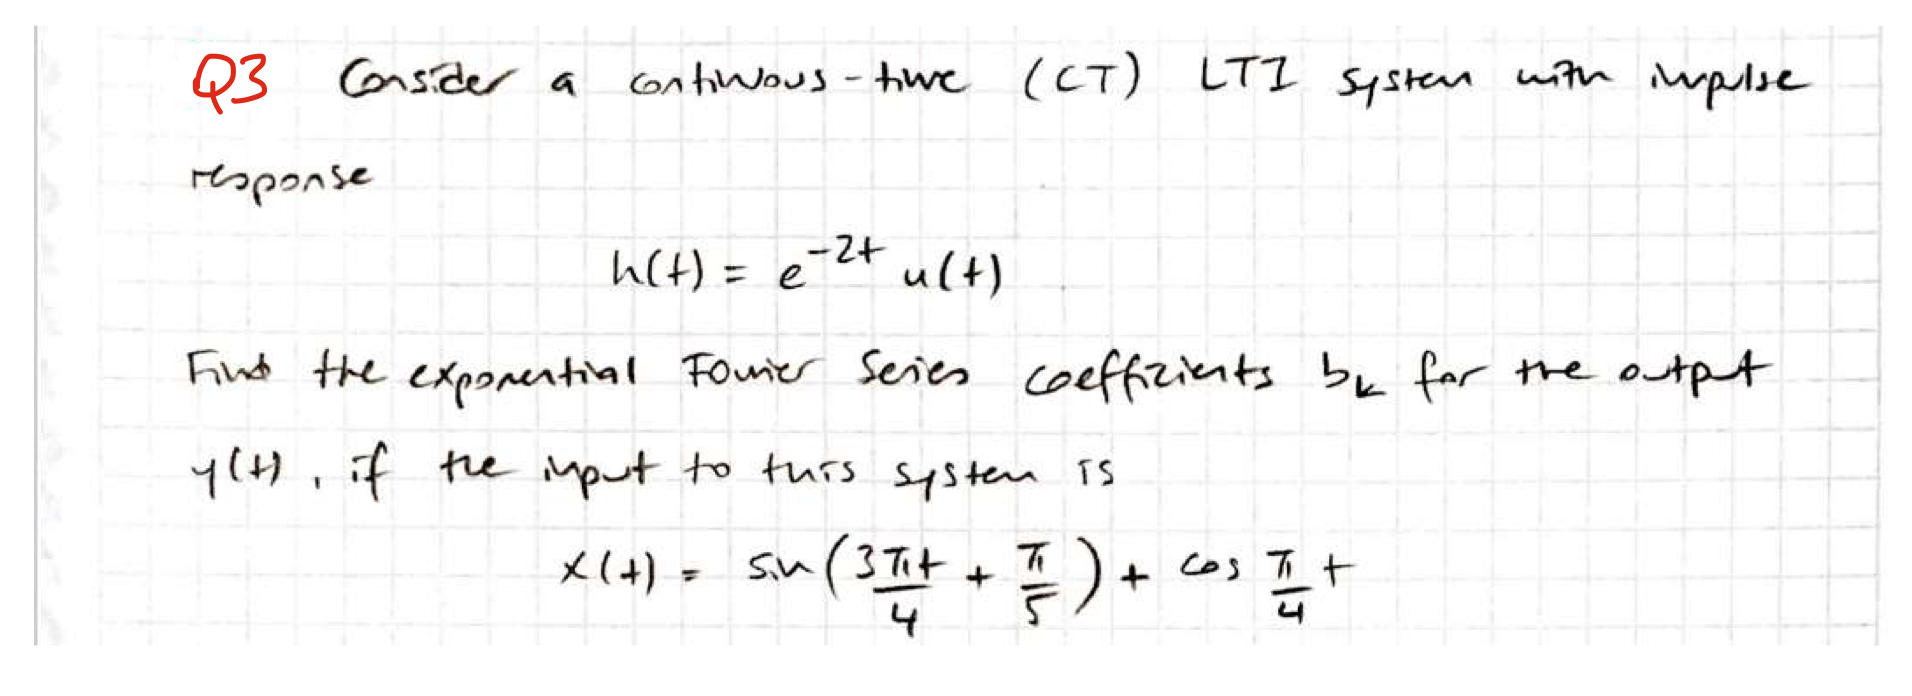 Q3 Consider a continuous-time (CT) LTI system with impulse
response
h(t) = e^{-2t} u(t)
Find the exponential Fourier Series coefficients b_k for the output
y(t), if the input to this system is
x(t) = sin(3πt/4 + π/5) + cos π/4 t